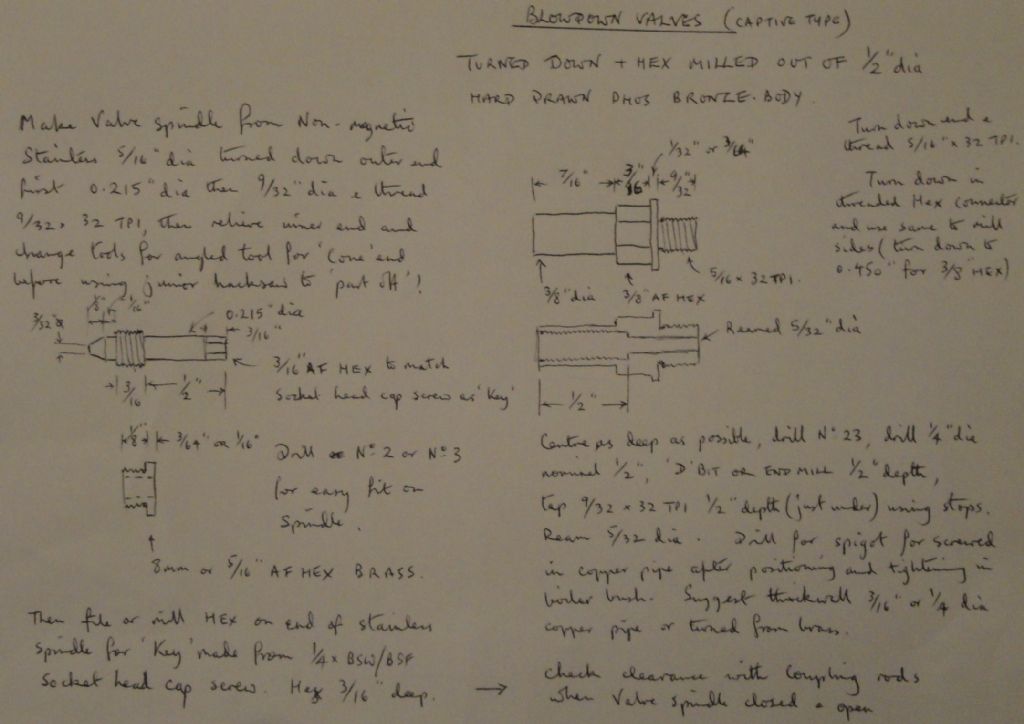 BLOWDOWN VALVES (CAPTIVE TYPE)
TURNED DOWN + HEX MILLED OUT OF 1/2" dia
HARD DRAWN BRONZE. BODY.
Make Valve spindle from Non-magnetic
Stainless 5/16" dia turned down outer end
first 0.215" dia then 9/32" dia & thread
9/32 x 32 TPI, then relieve inner end and
change tools for angled tool for 'Cone' end
before using junior hacksaw to 'part off'!
1/8" 1/16"
3/32"
0.215" dia
3/16"
3/16
1/2"
3/16" AF HEX to match
Socket head cap screw as 'Key'
1/8" 3/64" or 1/16"
Drill No 2 or No 3
for easy fit on
Spindle.
8mm or 5/16" AF HEX BRASS.
Then file or mill HEX on end of stainless
spindle for 'Key' made from 1/4 x BSW/BSF
Socket head cap screw. Hex 3/16" deep.
Turn down end &
thread 5/16" x 32 TPI.
Turn down in
threaded Hex connector
and use same to mill
sides (turn down to
0.450" for 3/8" HEX)
1/32" or 3/64"
7/16" 3/16" 9/32"
5/16 x 32 TPI.
3/8" dia
3/8" AF HEX
Reamed 5/32" dia
1/2"
Centre as deep as possible, drill No 23, drill 1/4" dia
nominal 1/2", 'D' BIT OR END MILL 1/2" depth,
tap 9/32 x 32 TPI 1/2" depth (just under) using stops.
Ream 5/32 dia. Drill for spigot for screwed
in copper pipe after positioning and tightening in
boiler bush. Suggest thickwall 3/16" or 1/4 dia
copper pipe or turned from brass.
→ Check clearance with Coupling rods
when Valve spindle closed & open